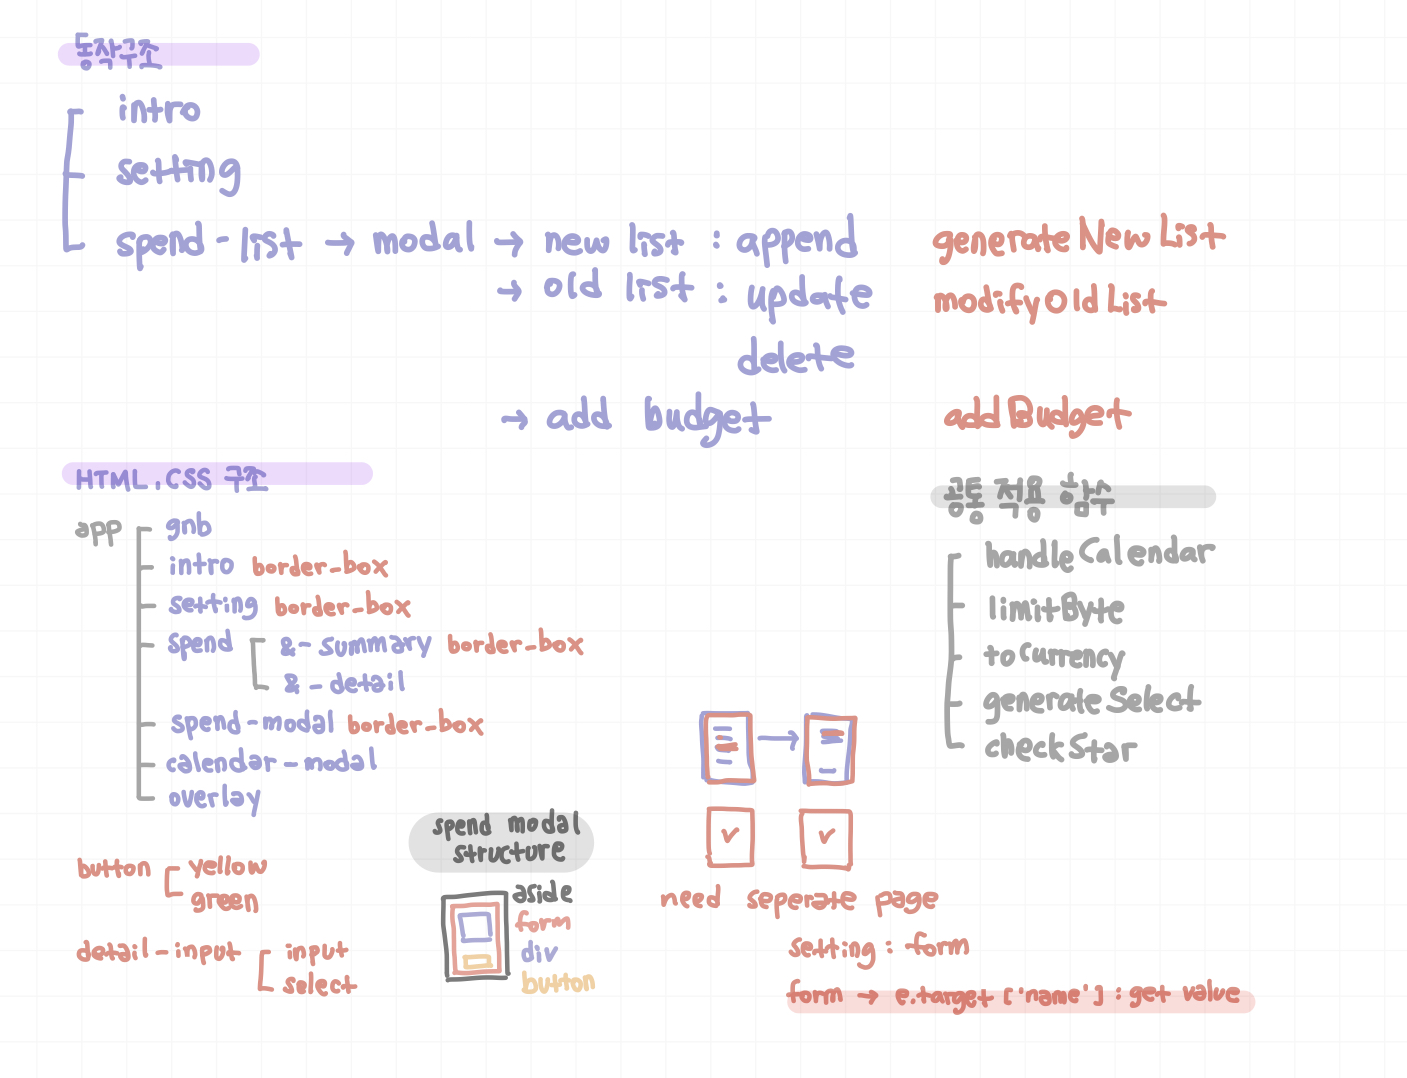 동작구조
intro
setting
spend-list → modal → new list : append generateNewList
→ old list : update modifyOldList
delete
→ add budget addBudget
HTML, CSS 구조
app
gnb
intro border-box
setting border-box
spend &-summary border-box
&-detail
spend-modal border-box
calendar-modal
overlay
공통 적용 함수
handleCalendar
limitByte
toCurrency
generateSelect
checkStar
button yellow
green
detail-input input
select
spend modal
structure
aside
form
div
button
need seperate page
setting : form
form → e.target ['name'] : get value